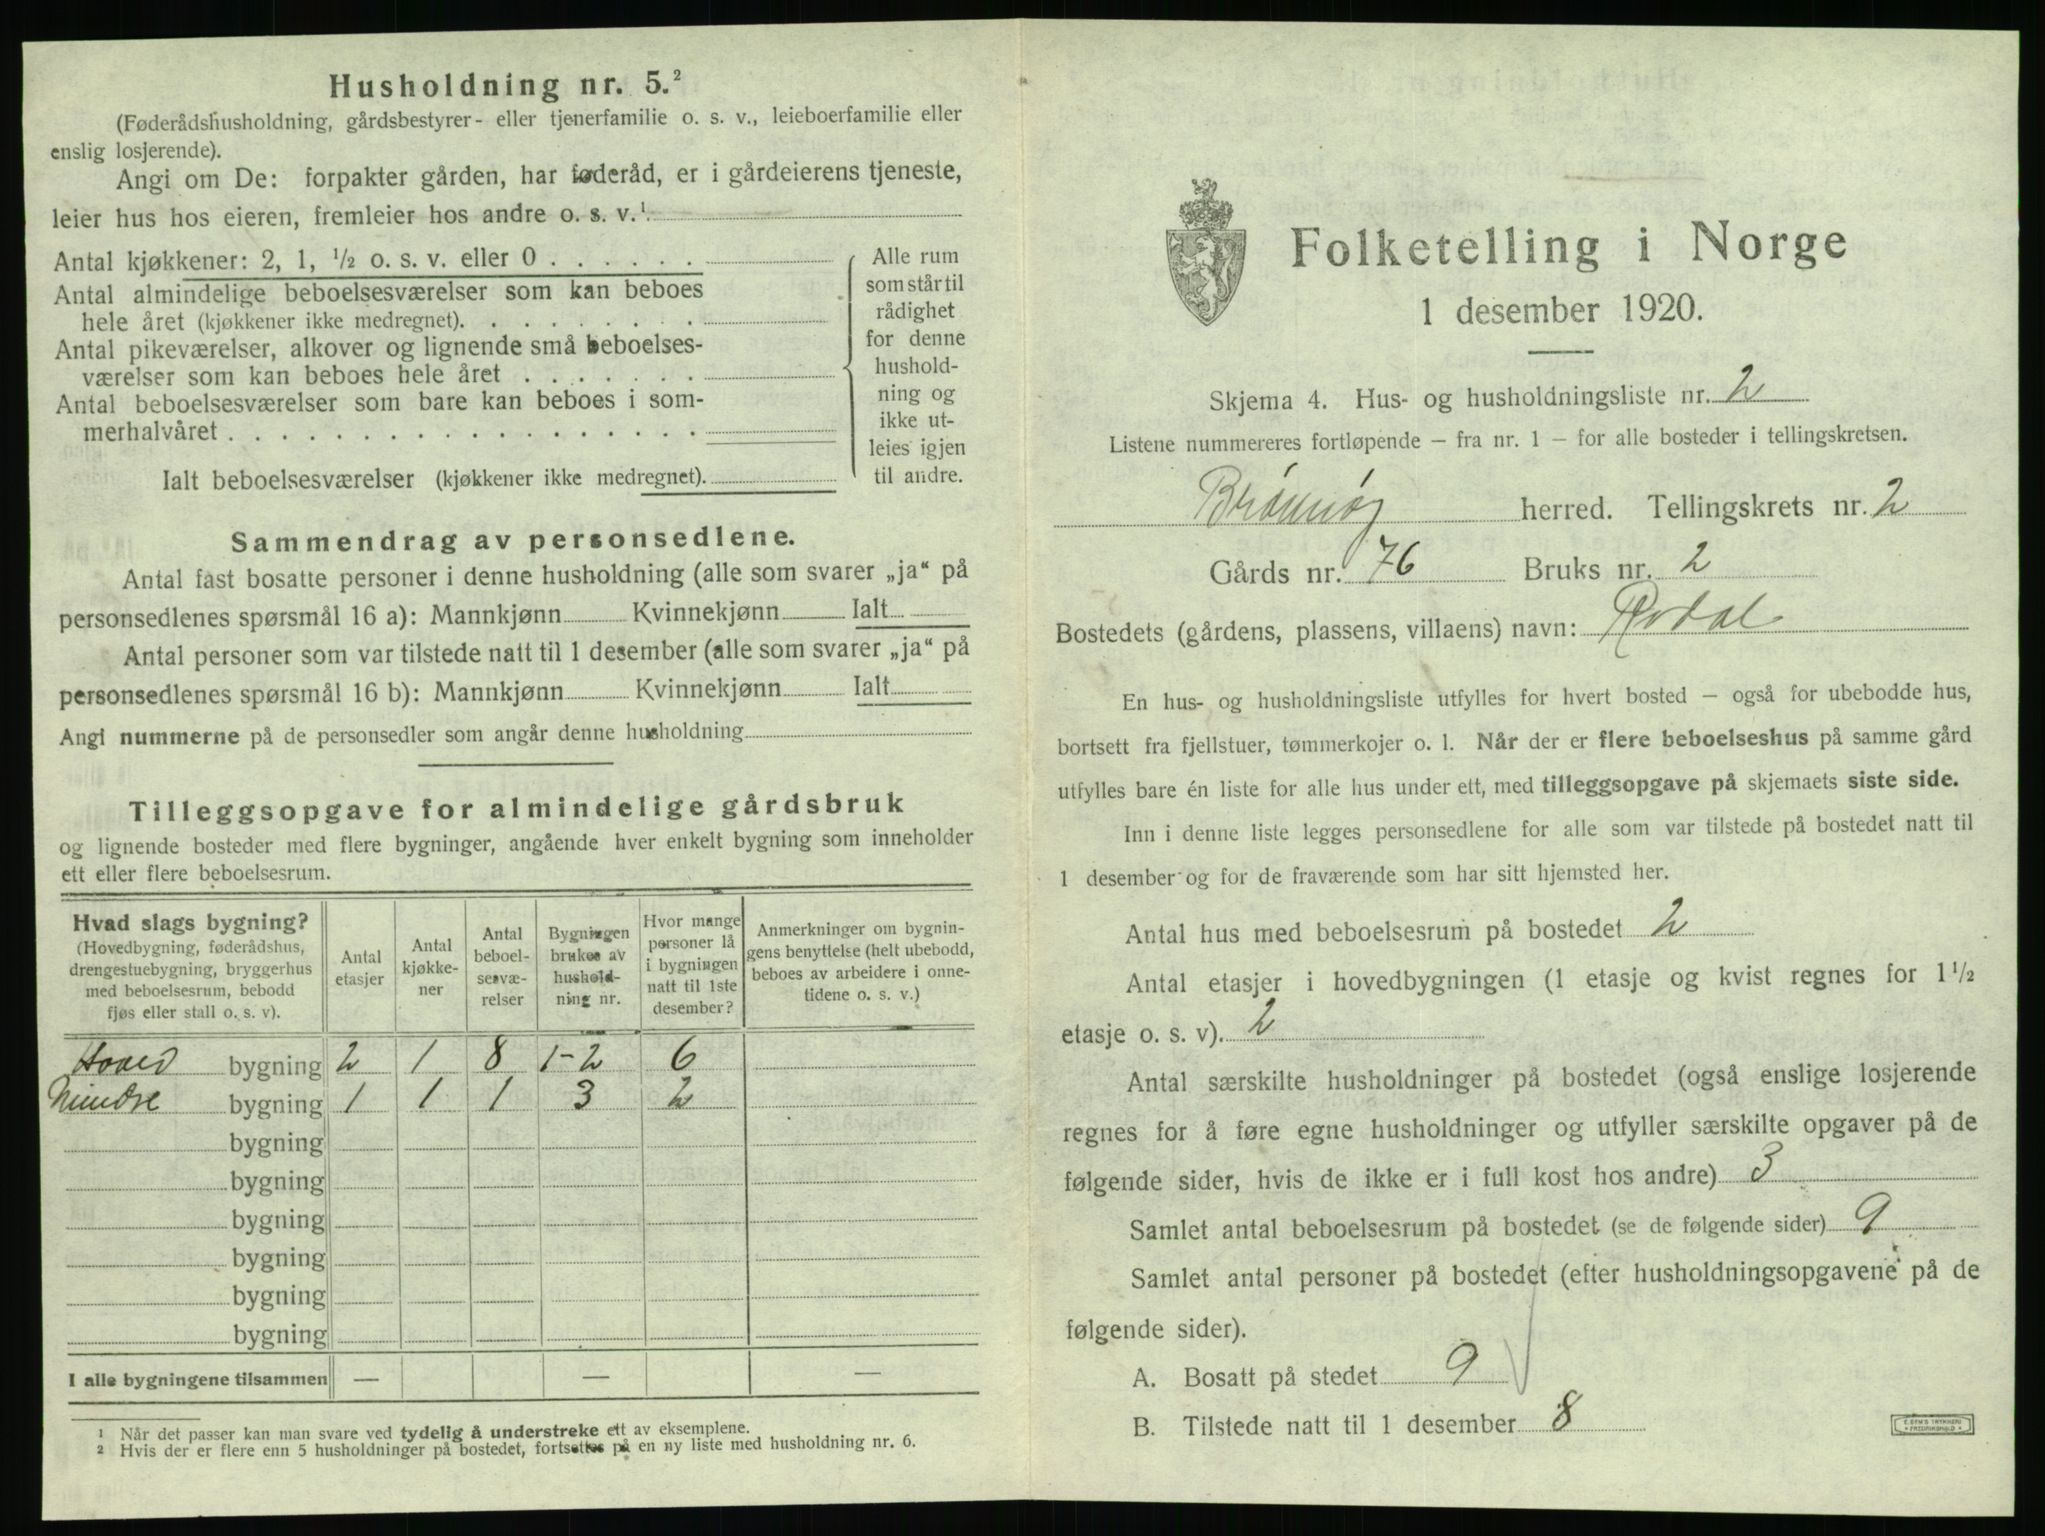 Husholdning nr. 5.²
(Føderådshusholdning, gårdsbestyrer- eller tjenerfamilie o. s. v., leieboerfamilie eller
enslig losjerende).
Angi om De: forpakter gården, har føderåd, er i gårdeierens tjeneste,
leier hus hos eieren, fremleier hos andre o. s. v.¹
Antal kjøkkener: 2, 1, ½ o. s. v. eller 0 . . . . . .
Antal almindelige beboelsesværelser som kan beboes
hele året (kjøkkener ikke medregnet). . . . . . . . .
Antal pikeværelser, alkover og lignende små beboelses-
værelser som kan beboes hele året . . . . . . .
Antal beboelsesværelser som bare kan beboes i som-
merhalvåret . . . . . . . . . . . . . . . . . .
Ialt beboelsesværelser (kjøkkener ikke medregnet).
Alle rum
som står til
rådighet
for denne
hushold-
ning og
ikke ut-
leies igjen
til andre.
Sammendrag av personsedlene.
Antal fast bosatte personer i denne husholdning (alle som svarer „ja“ på
personsedlenes spørsmål 16 a): Mannkjønn Kvinnekjønn Ialt
Antal personer som var tilstede natt til 1 desember (alle som svarer „ja“ på
personsedlenes spørsmål 16 b): Mannkjønn Kvinnekjønn Ialt
Angi nummerne på de personsedler som angår denne husholdning
Tilleggsopgave for almindelige gårdsbruk
og lignende bosteder med flere bygninger, angående hver enkelt bygning som inneholder
ett eller flere beboelsesrum.
Hvad slags bygning?
(Hovedbygning, føderådshus,
drengestuebygning, bryggerhus
med beboelsesrum, bebodd
fjøs eller stall o. s. v).
Antal
etasjer
Antal
kjøkke-
ner
Antal
beboel-
sesvæ-
relser
Bygningen
brukes av
hushold-
ning nr.
Hvor mange
personer lå
i bygningen
natt til 1ste
desember?
Anmerkninger om bygnin-
gens benyttelse (helt ubebodd,
beboes av arbeidere i onne-
tidene o. s. v.)
Hoved bygning 2 1 8 1-2 6
Mindre bygning 1 1 1 3 2
bygning
bygning
bygning
bygning
bygning
bygning
I alle bygningene tilsammen — — —
¹ Når det passer kan man svare ved tydelig å understreke ett av eksemplene.
² Hvis der er flere enn 5 husholdninger på bostedet, fortsettes på en ny liste med husholdning nr. 6.
Folketelling i Norge
1 desember 1920.
Skjema 4. Hus- og husholdningsliste nr. 2
Listene nummereres fortløpende – fra nr. 1 – for alle bosteder i tellingskretsen.
Brønnøy herred. Tellingskrets nr. 2
Gårds nr. 76 Bruks nr. 2
Bostedets (gårdens, plassens, villaens) navn:
En hus- og husholdningsliste utfylles for hvert bosted – også for ubebodde hus,
bortsett fra fjellstuer, tømmerkojer o. l. Når der er flere beboelseshus på samme gård
utfylles bare én liste for alle hus under ett, med tilleggsopgave på skjemaets siste side.
Inn i denne liste legges personsedlene for alle som var tilstede på bostedet natt til
1 desember og for de fraværende som har sitt hjemsted her.
Antal hus med beboelsesrum på bostedet 2
Antal etasjer i hovedbygningen (1 etasje og kvist regnes for 1½
etasje o. s. v). 2
Antal særskilte husholdninger på bostedet (også enslige losjerende
regnes for å føre egne husholdninger og utfyller særskilte opgaver på de
følgende sider, hvis de ikke er i full kost hos andre) 3
Samlet antal beboelsesrum på bostedet (se de følgende sider) 9
Samlet antal personer på bostedet (efter husholdningsopgavene på de
følgende sider).
A. Bosatt på stedet 9
B. Tilstede natt til 1 desember 8